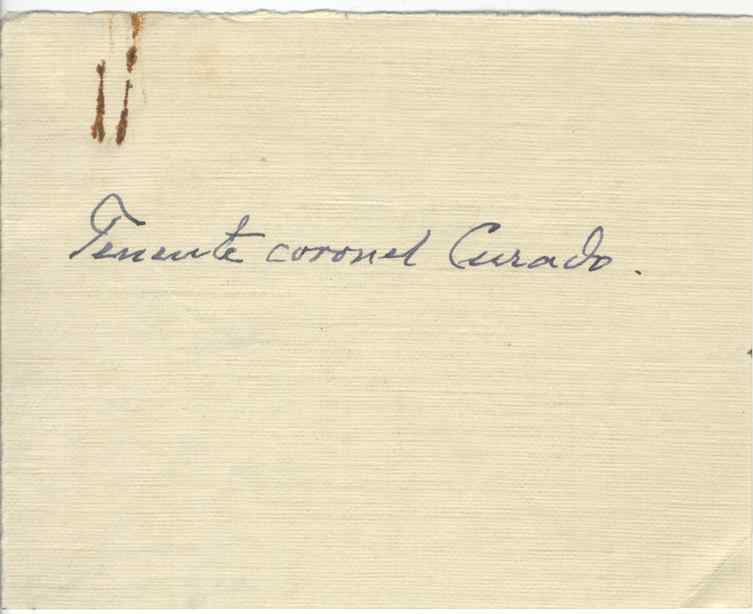 Tenente coronel Curado.